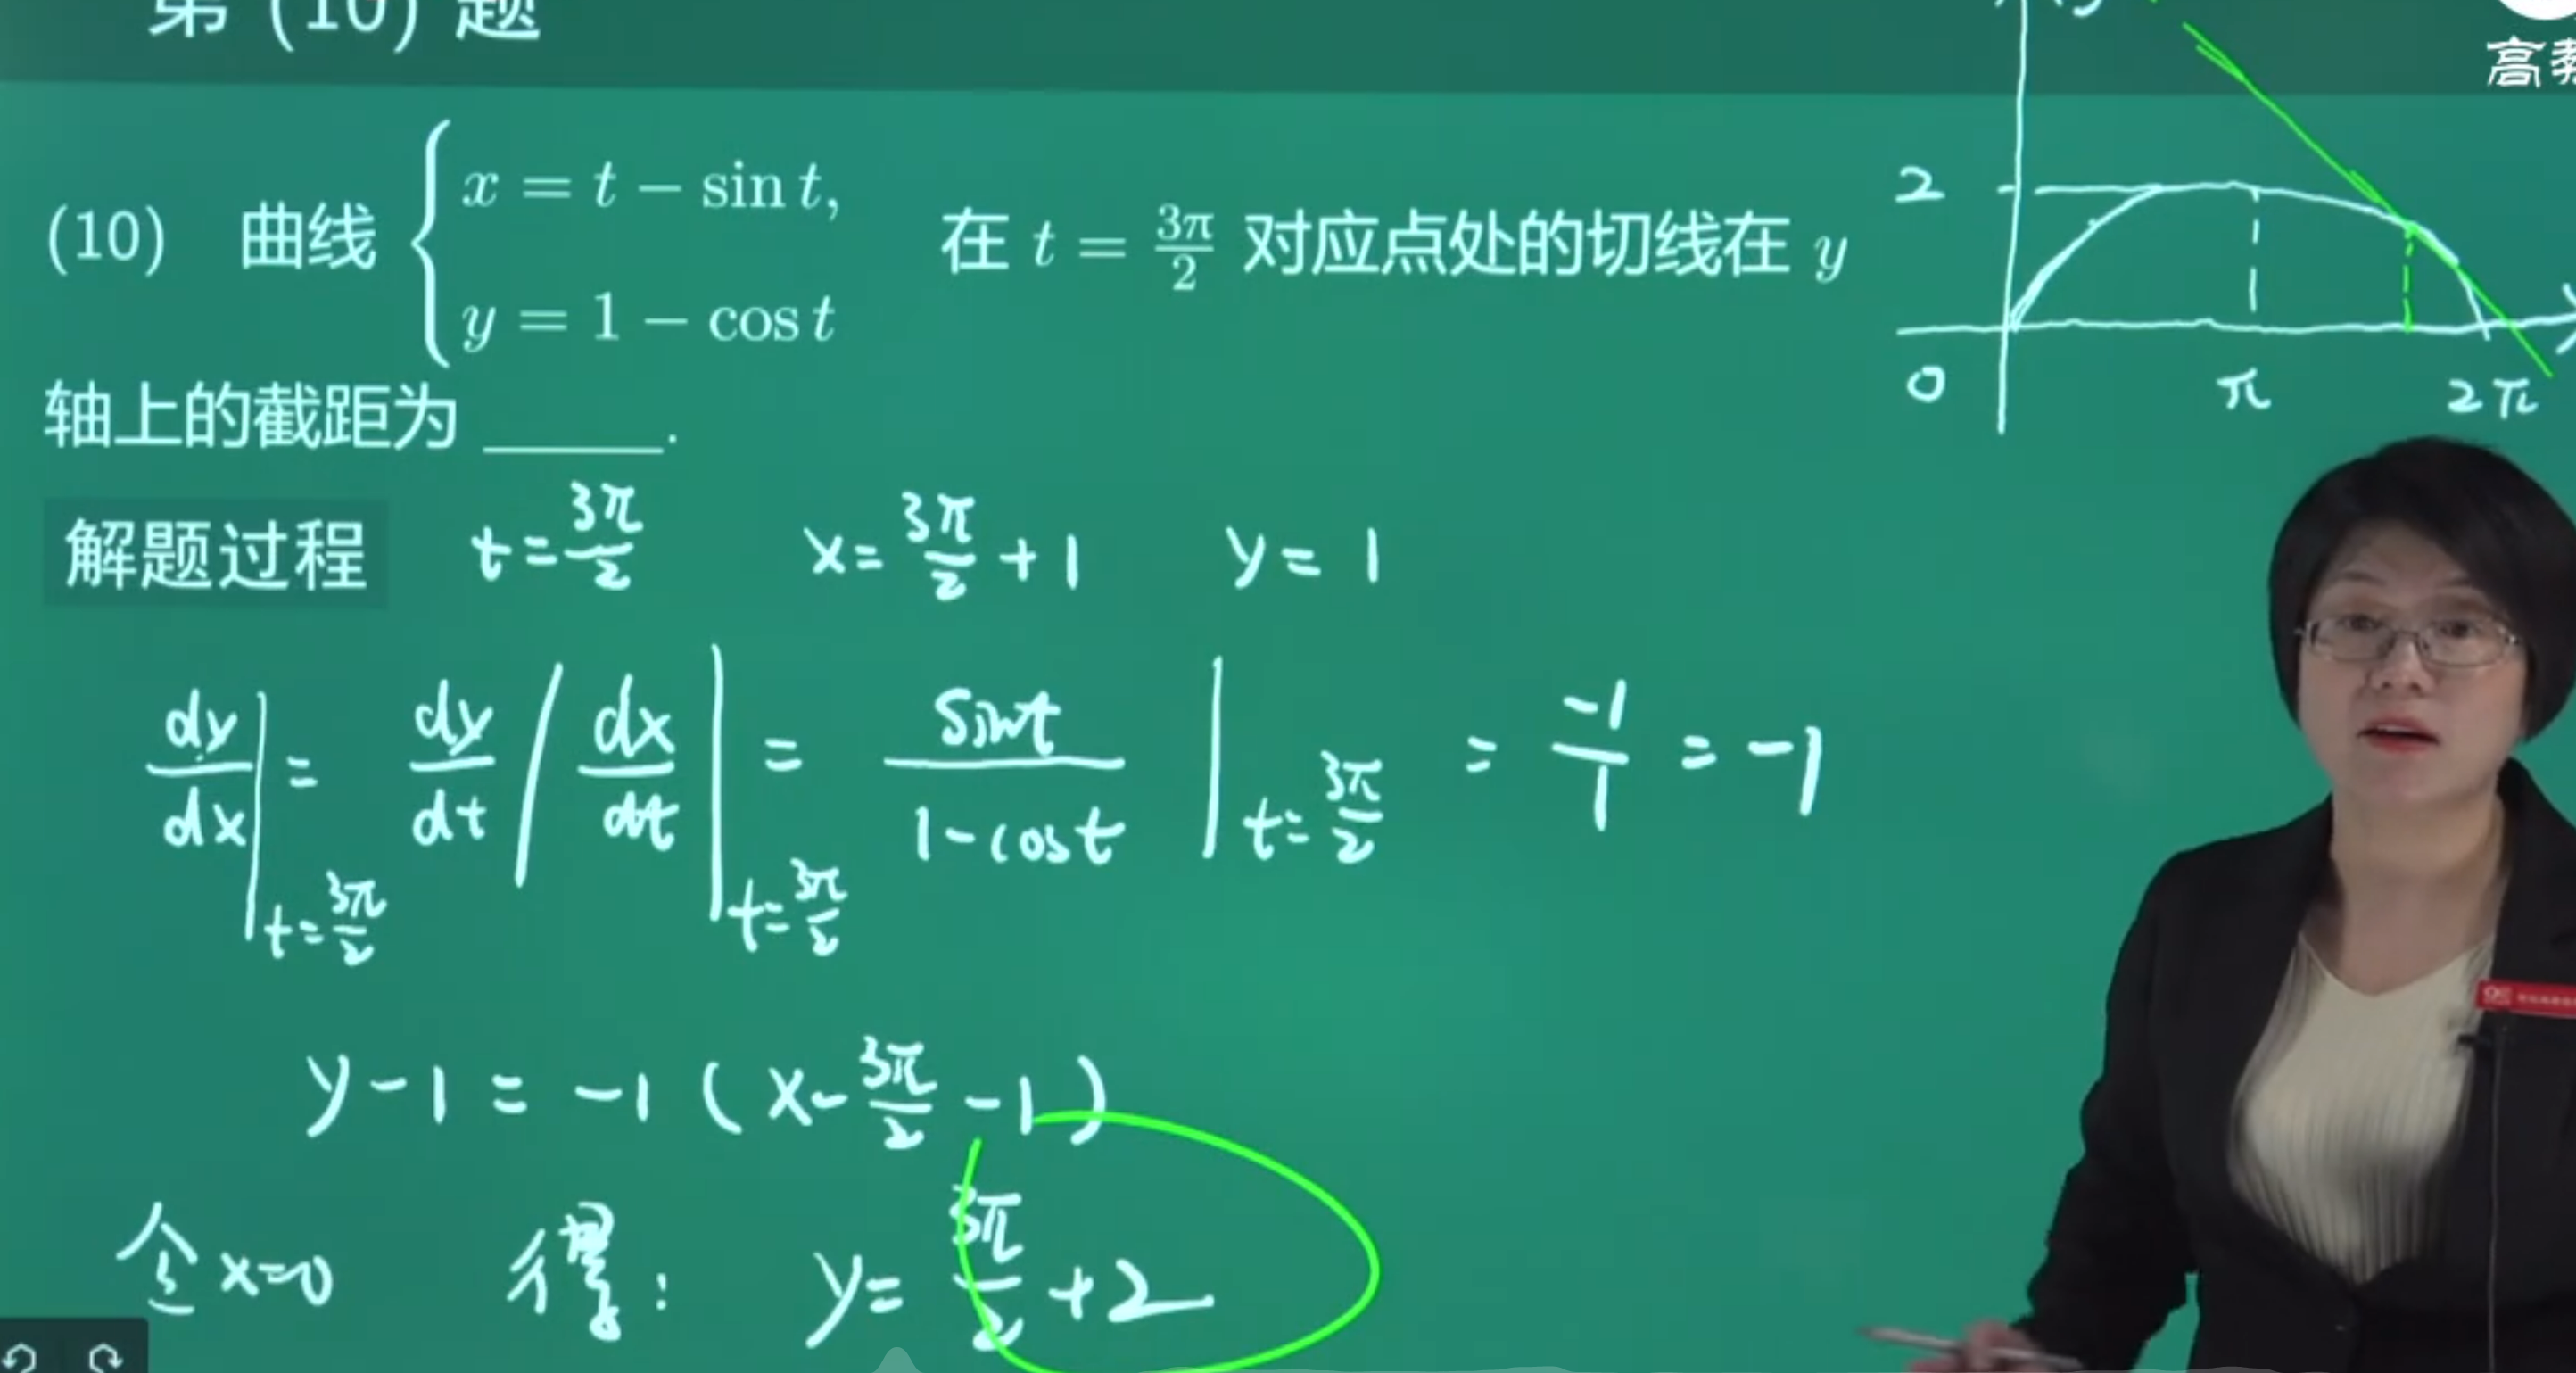 第 (10) 题
高教
(10) 曲线 { x = t − sin t, y = 1 − cos t 在 t = 3π/2 对应点处的切线在 y
轴上的截距为 ______.
2
0 π 2π
解题过程 t = 3π/2 x = 3π/2 + 1 y = 1
dy/dx |t=3π/2 = dy/dt / dx/dt |t=3π/2 = sint/(1-cost) |t=3π/2 = -1/1 = -1
y-1 = -1 ( x - 3π/2 - 1 )
令 x=0 得: y = 3π/2 + 2